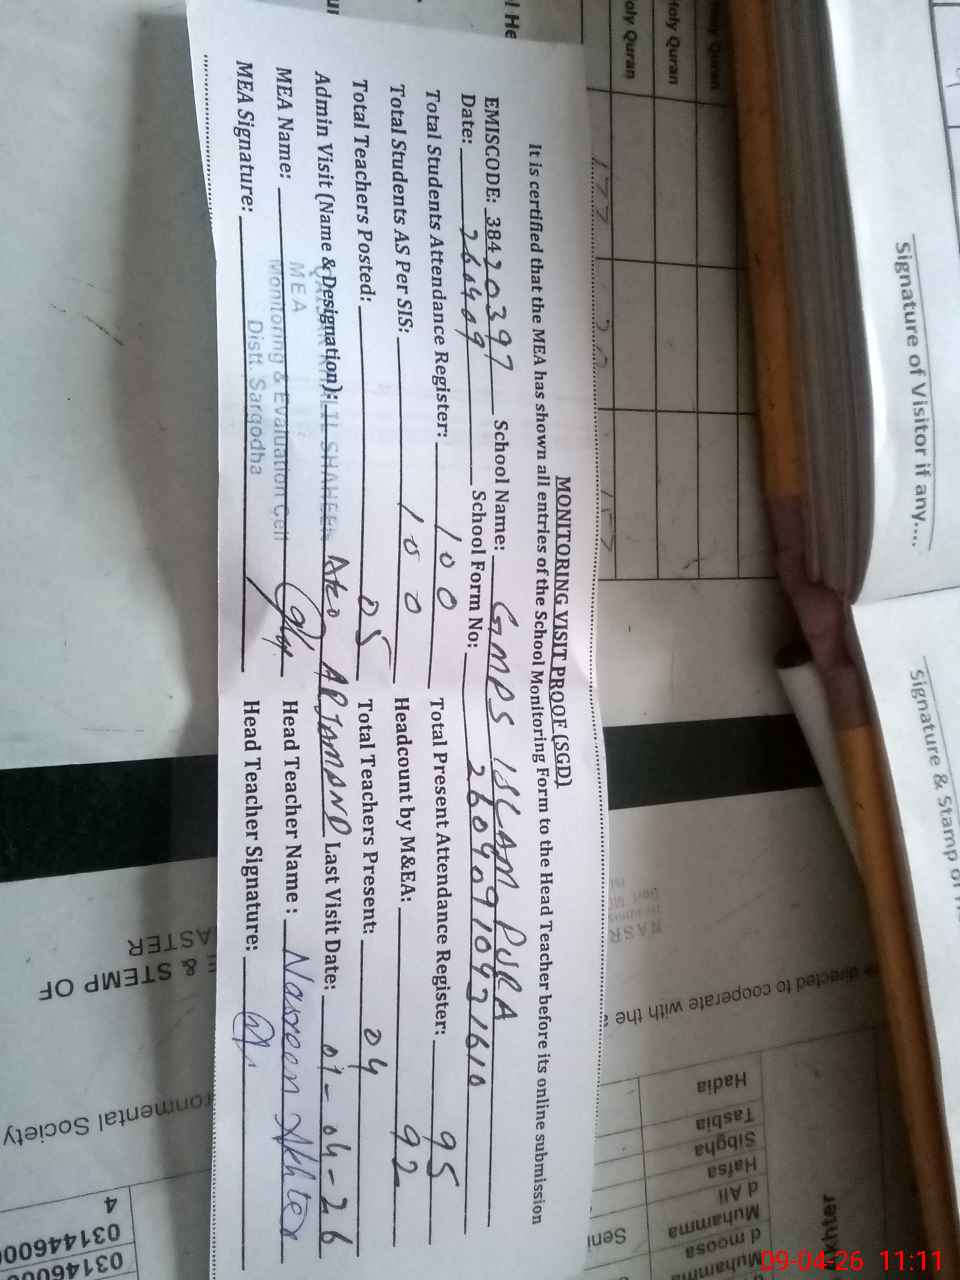 MONITORING VISIT PROOF (SGD)
It is certified that the MEA has shown all entries of the School Monitoring Form to the Head Teacher before its online submission
EMISCODE: 38420397 School Name: GMPS ISLAM PURA
Date: 260409 School Form No: 26040910921610
Total Students Attendance Register: 100 Total Present Attendance Register: 95
Total Students AS Per SIS: 100 Headcount by M&EA: 92
Total Teachers Posted: 05 Total Teachers Present: 04
Admin Visit (Name & Designation): AEO ARJAMAND Last Visit Date: 07-04-26
MEA Name: Head Teacher Name : Nasreen Akhter
MEA Signature: Head Teacher Signature:
SHAHEEN
MEA
Monitoring & Evaluation Cell
Distt. Sargodha
Signature of Visitor if any....
Signature & Stamp of
Holy Quran
Holy Quran
directed to cooperate with the
& STEMP OF
ASTER
ronmental Society
Hadia
Tasbia
Sibgha
Hafsa
d Ali
Muhamma
d moosa
Muhamma
Seni
4
09-04-26 11:11